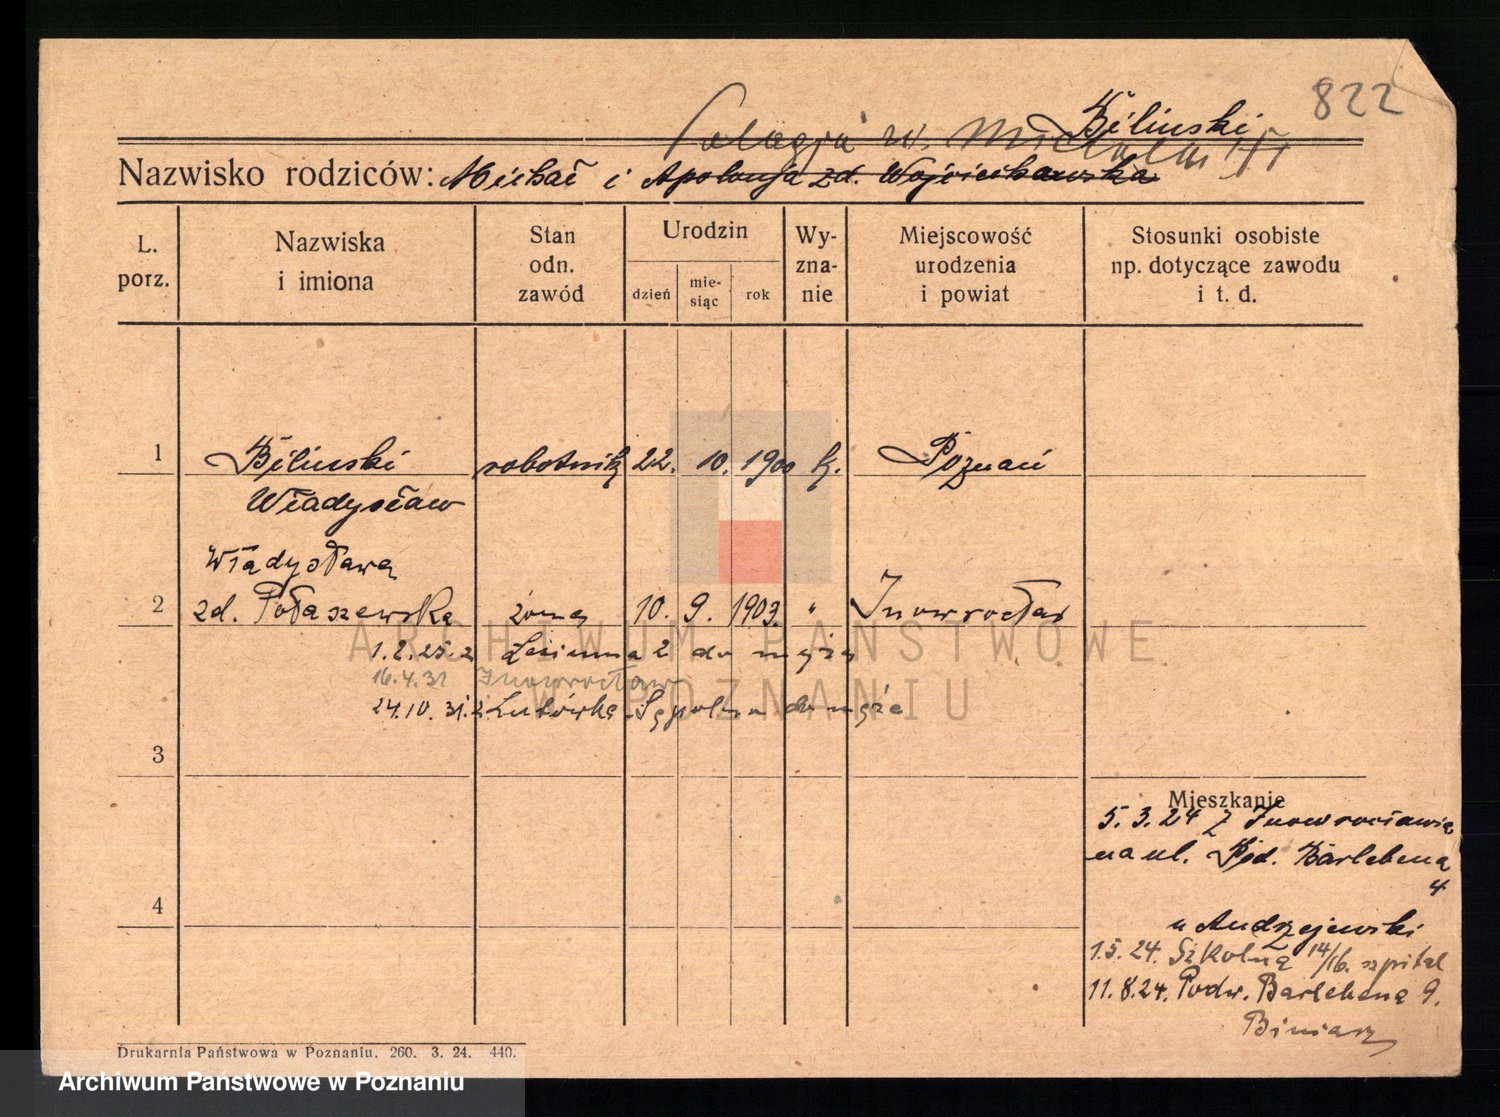 822
Biliński
Pelagja w. Michalak
Nazwisko rodziców: Michał i Apolonja zd. Wojciechowska
L. porz.
Nazwiska i imiona
Stan odn. zawód
Urodzin
dzień
mie- siąc
rok
Wy- zna- nie
Miejscowość urodzenia i powiat
Stosunki osobiste np. dotyczące zawodu i t. d.
1 Biliński robotnik 22. 10. 1900 k. Poznań
Władysław
Władysława
2 zd. Potaszewska żona 10. 9. 1903. " Inowrocław
1.2.25. z Leśienna 2 do męża
16.4.31 Inowrocław
24.10.31. z Lutówka Sępolno do męża
3
Mieszkanie
5.3.24 z Inowrocławia
na ul. Pod. Barlebena
4
4
u Andrzejewski
1.5.24. Szkolna 14/16. szpital
11.8.24. Podw. Barlebena 9.
Biniasz
Drukarnia Państwowa w Poznaniu. 260. 3. 24. 440.
ARCHIWUM PAŃSTWOWE
W POZNANIU
Archiwum Państwowe w Poznaniu